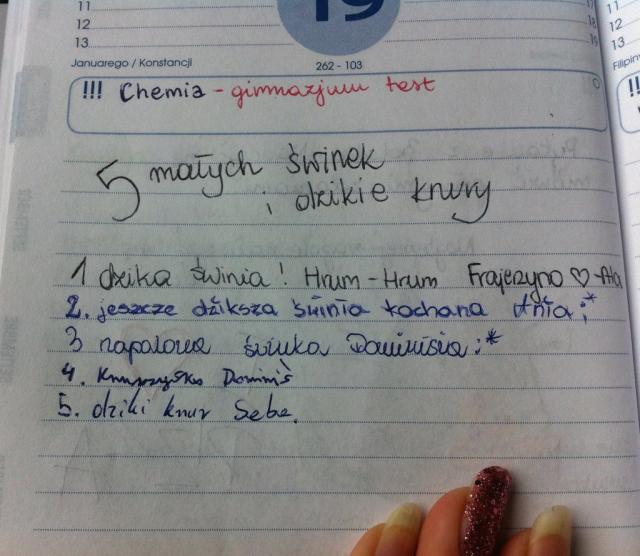 11
12
13
19
11
12
13
Januarego / Konstancji
262 - 103
Filipin
!!! Chemia - gimnazjum test
!!
5 małych świnek
i dzikie knury
1 dzika świnia! Hrum - Hrum Frajerzyno ♡ - Ala
2. jeszcze dziksza świnia kochana Ania;*
3 napalowa świnka Dominisia:*
4. Dominiś
5. dziki knur Sebe.